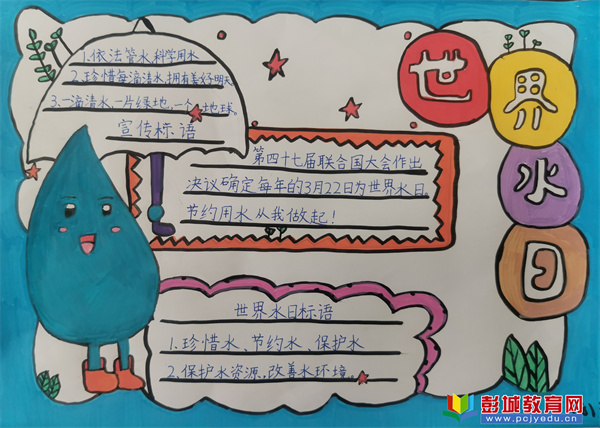 世界水日
1.依法管水,科学用水
2.珍惜每滴清水,拥有美好明天
3.一滴清水,一片绿地,一个地球。
宣传标语
第四十七届联合国大会作出
决议确定每年的3月22日为世界水日。
节约用水从我做起!
世界水日标语
1.珍惜水、节约水、保护水
2.保护水资源,改善水环境。
彭城教育网
www.pcjyedu.cn